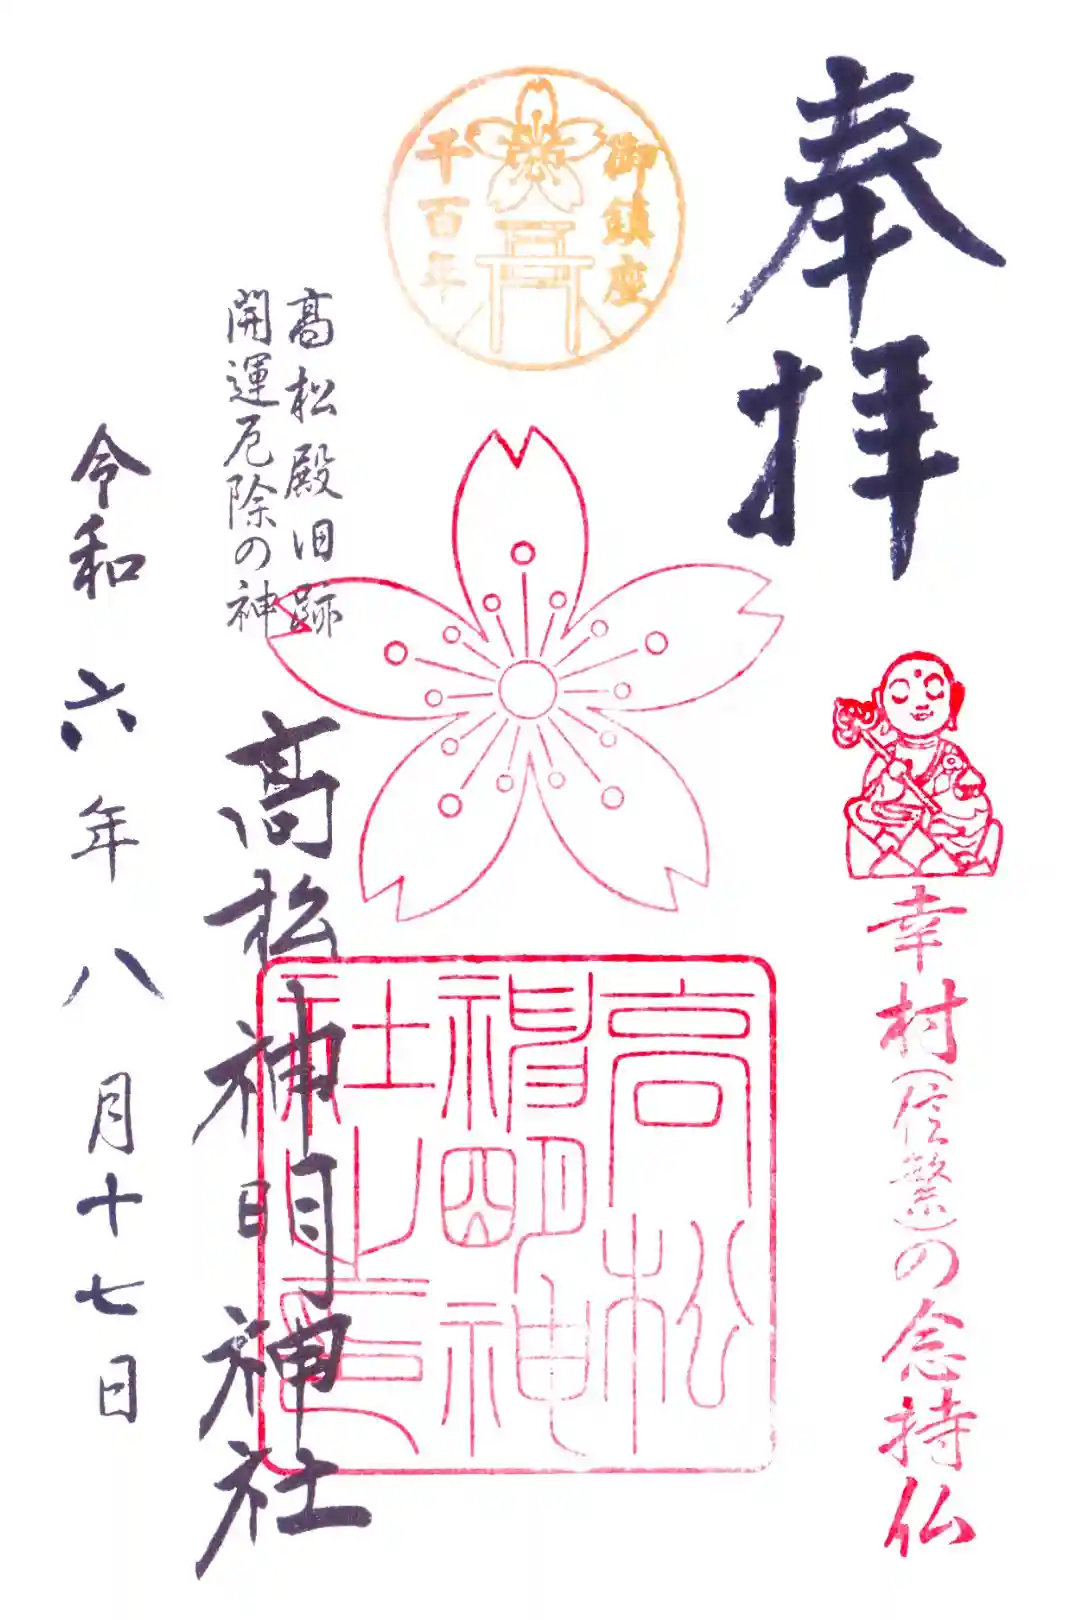 奉拝
幸村(信繁)の念持仏
御鎮座
千百年
高松殿旧跡
開運厄除の神
高松神明神社
高松
神明神
社之印
令和六年八月十七日